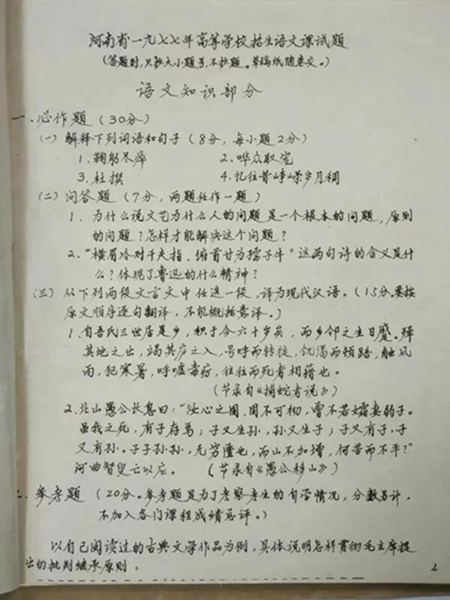 河南省一九七七年高等学校招生语文课试题
(答题时,只抄大小题号,不抄题。草稿纸随卷交。)
语文知识部分
一、必作题(30分)
(一)解释下列词语和句子(8分,每小题2分)
1.鞠躬尽瘁 2.哗众取宠
3.杜撰 4.忆往昔峥嵘岁月稠
(二)问答题(7分,两题任作一题)
1.为什么说文艺为什么人的问题是一个根本的问题,原则
的问题?怎样才能解决这个问题?
2.“横眉冷对千夫指,俯首甘为孺子牛”这两句诗的含义是什
么?体现了鲁迅的什么精神?
(三)从下列两段文言文中任选一段,译为现代汉语。(15分。要按
原文顺序逐句翻译,不能概括意译。)
1.自吾氏三世居是乡,积于今六十岁矣,而乡邻之生日蹙。殚
其地之出,竭其庐之入,号呼而转徙,饥渴而顿踣,触风
雨,犯寒暑,呼嘘毒疠,往往而死者相藉也。
(节录自《捕蛇者说》)
2.北山愚公长息曰:“汝心之固,固不可彻,曾不若孀妻弱子。
虽我之死,有子存焉;子又生孙,孙又生子;子又有子,子
又有孙。子子孙孙,无穷匮也,而山不加增,何苦而不平?”
河曲智叟亡以应。 (节录自《愚公移山》)
二、参考题(20分。参考题是为了考察考生的自学情况,分数另计,
不加入各门课程成绩总评。)
以自己阅读过的古典文学作品为例,具体说明怎样贯彻毛主席提
出的批判继承原则。
2